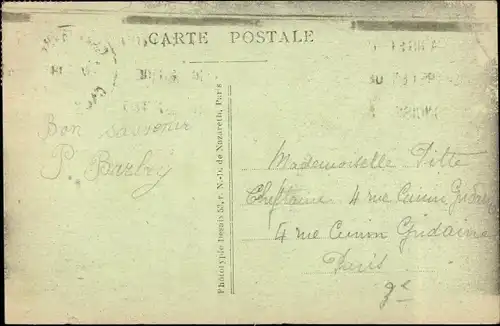 CARTE POSTALE
Bon souvenir
P. Barbry
Phototypie Desaix 53, r. N.-D. de Nazareth, Paris
Mademoiselle Pitte
Cheftaine 4 rue Cunin
4 rue Cunin Gridaine
Paris
3e